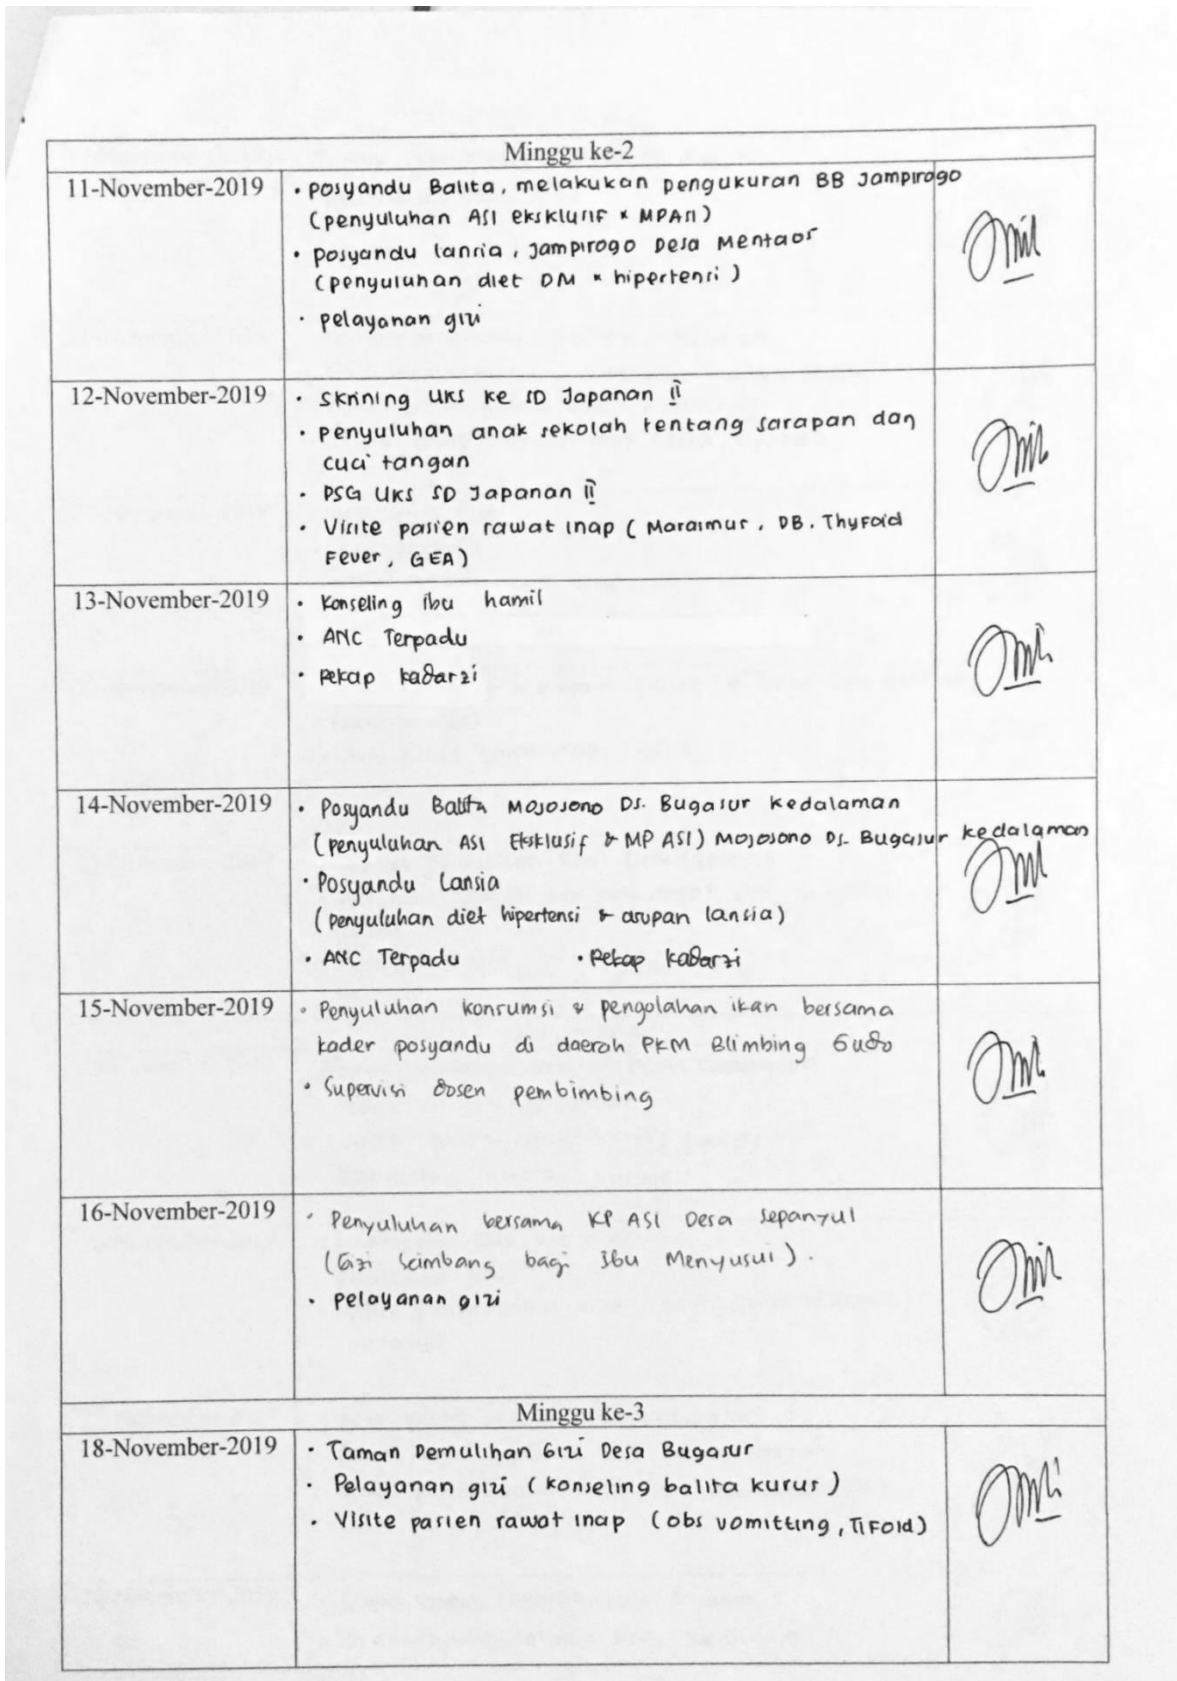 Minggu ke-2
11-November-2019
• Posyandu Balita, melakukan pengukuran BB Jampirogo
(penyuluhan ASI eksklusif & MPASI)
• Posyandu lansia, Jampirogo Desa Mentaos
(penyuluhan diet DM & hipertensi)
• pelayanan gizi
12-November-2019
• Skrining UKS ke SD Japanan II
• penyuluhan anak sekolah tentang sarapan dan
cuci tangan
• PSG UKS SD Japanan II
• Visite pasien rawat inap (Marasmus, DB, Thyfoid
Fever, GEA)
13-November-2019
• Konseling ibu hamil
• ANC Terpadu
• Rekap kadarzi
14-November-2019
• Posyandu Balita Mojosono Ds. Bugasur Kedalaman
(penyuluhan ASI Eksklusif & MP ASI) Mojosono Ds. Bugasur kedalaman
• Posyandu Lansia
(penyuluhan diet hipertensi & asupan lansia)
• ANC Terpadu • Rekap Kadarzi
15-November-2019
• Penyuluhan konsumsi & pengolahan ikan bersama
kader posyandu di daerah PKM Blimbing Gudo
• Supervisi dosen pembimbing
16-November-2019
• Penyuluhan bersama KP ASI Desa Sepanyul
(Gizi Seimbang bagi Ibu Menyusui).
• pelayanan gizi
Minggu ke-3
18-November-2019
• Taman Pemulihan Gizi Desa Bugasur
• Pelayanan gizi (konseling balita kurus)
• Visite pasien rawat inap (obs vomitting, Tifoid)